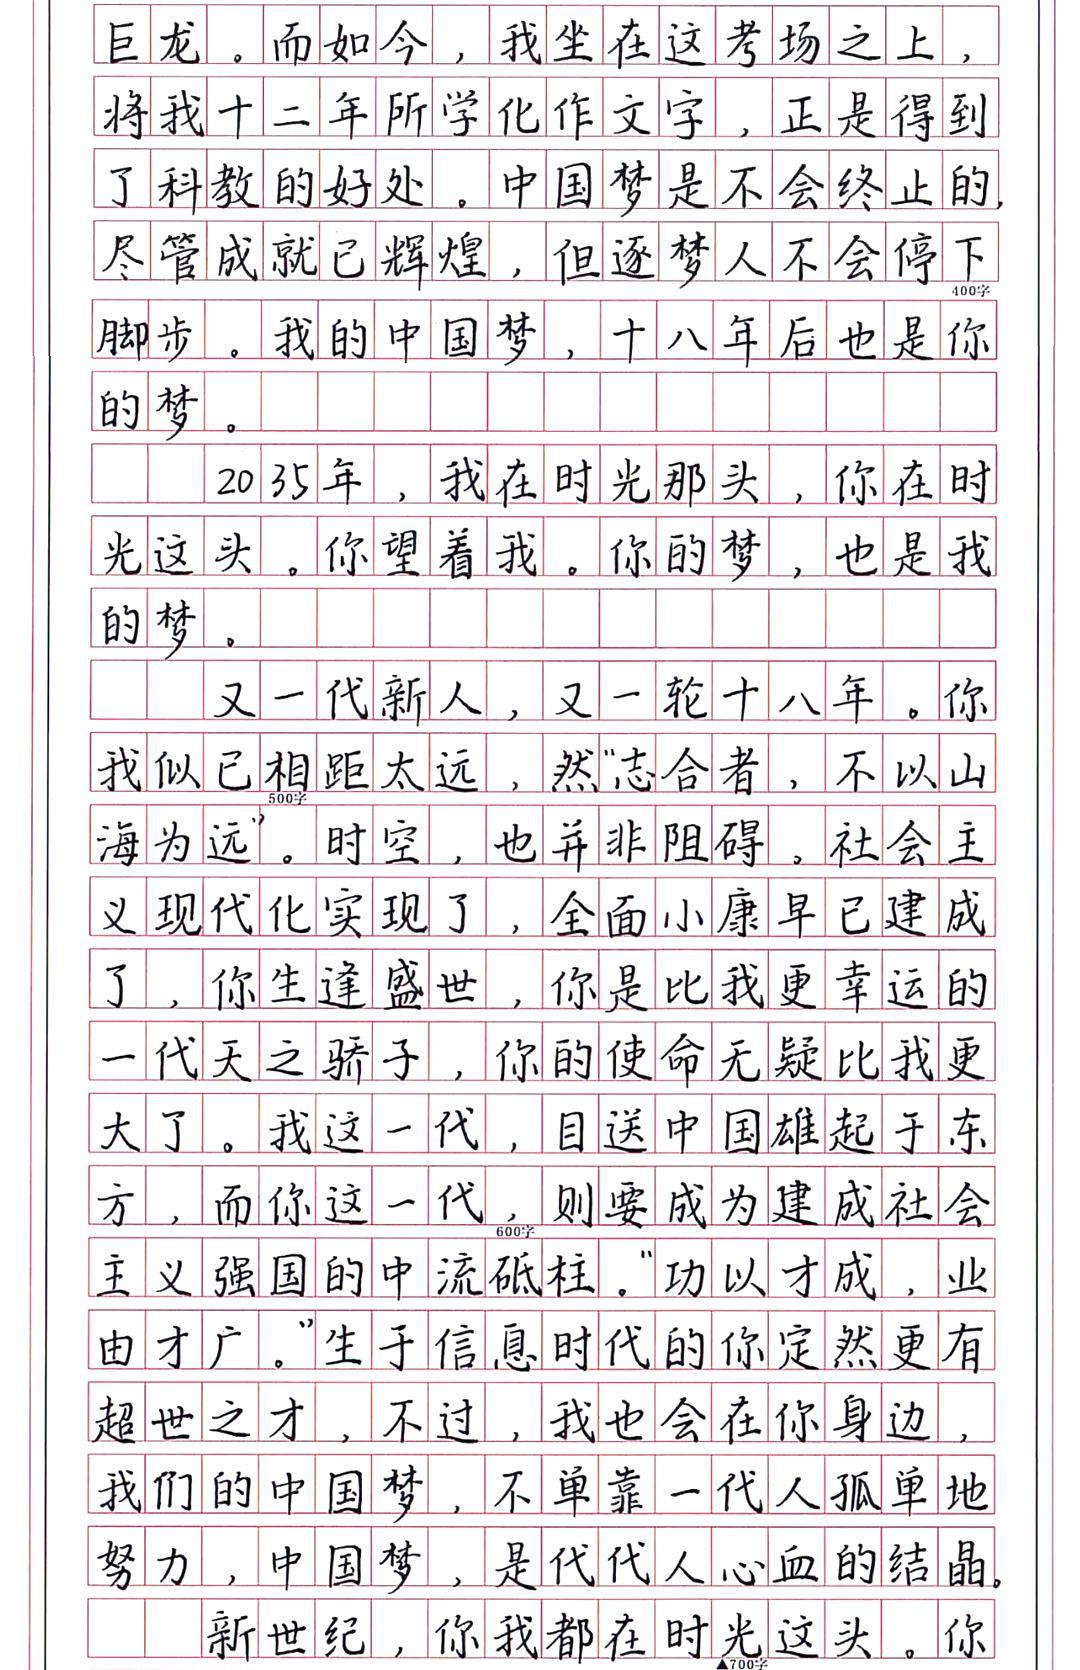 巨龙。而如今，我坐在这考场之上，
将我十二年所学化作文字，正是得到
了科教的好处。中国梦是不会终止的，
尽管成就已辉煌，但逐梦人不会停下
400字
脚步。我的中国梦，十八年后也是你
的梦。
2035年，我在时光那头，你在时
光这头。你望着我。你的梦，也是我
的梦。
又一代新人，又一轮十八年。你
我似已相距太远，然“志合者，不以山
500字
海为远”。时空，也并非阻碍。社会主
义现代化实现了，全面小康早已建成
了，你生逢盛世，你是比我更幸运的
一代天之骄子，你的使命无疑比我更
大了。我这一代，目送中国雄起于东
方，而你这一代，则要成为建成社会
600字
主义强国的中流砥柱。“功以才成，业
由才广。”生于信息时代的你定然更有
超世之才，不过，我也会在你身边，
我们的中国梦，不单靠一代人孤单地
努力，中国梦，是代代人心血的结晶。
新世纪，你我都在时光这头。你
▲700字